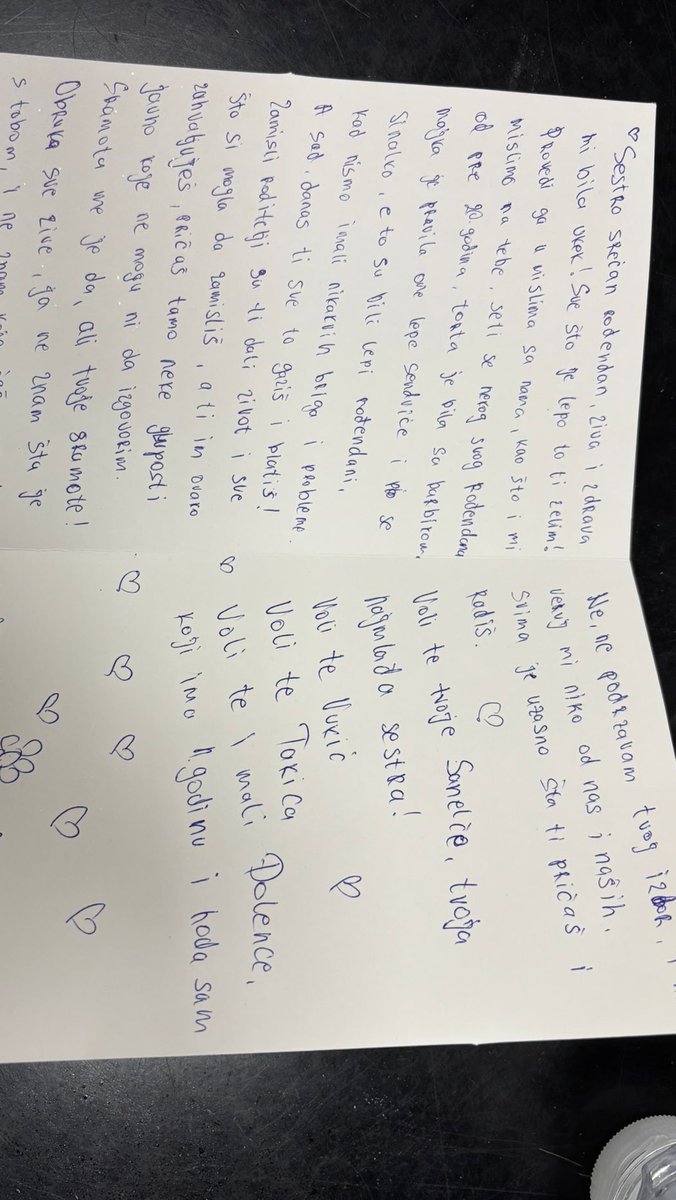 ♡ Sestro srećan rođendan, živa i zdrava
mi bila uvek! Sve što je lepo to ti želim!
Provedi ga u mislima sa nama, kao što i mi
mislimo na tebe, seti se nekog svog rođendana
od pre 20. godina, torta je bila sa barbikom,
majka je pravila one lepe sendviče i se
Sinalko, e to su bili lepi rođendani,
kad nismo imali nikakvih briga i problema.
A sad, danas ti sve to gaziš i blatiš!
Zamisli roditelji su ti dali život i sve
što si mogla da zamisliš, a ti im ovako
zahvaljuješ, pričaš tamo neke gluposti
javno koje ne mogu ni da izgovorim.
Sramota me je da, ali tvoje sramote!
Obruka sve žive, ja ne znam šta je
s tobom, i ne znam
Ne, ne podržavam tvog izbor, i
veruj mi niko od nas i naših.
Svima je užasno šta ti pričaš i
radiš. ♡
Voli te tvoje Sanelče, tvoja
najmlađa sestra!
Voli te Vukić ♡
Voli te Takica
♡ Voli te i mali Dolence,
koji ima 1.godinu i hoda sam